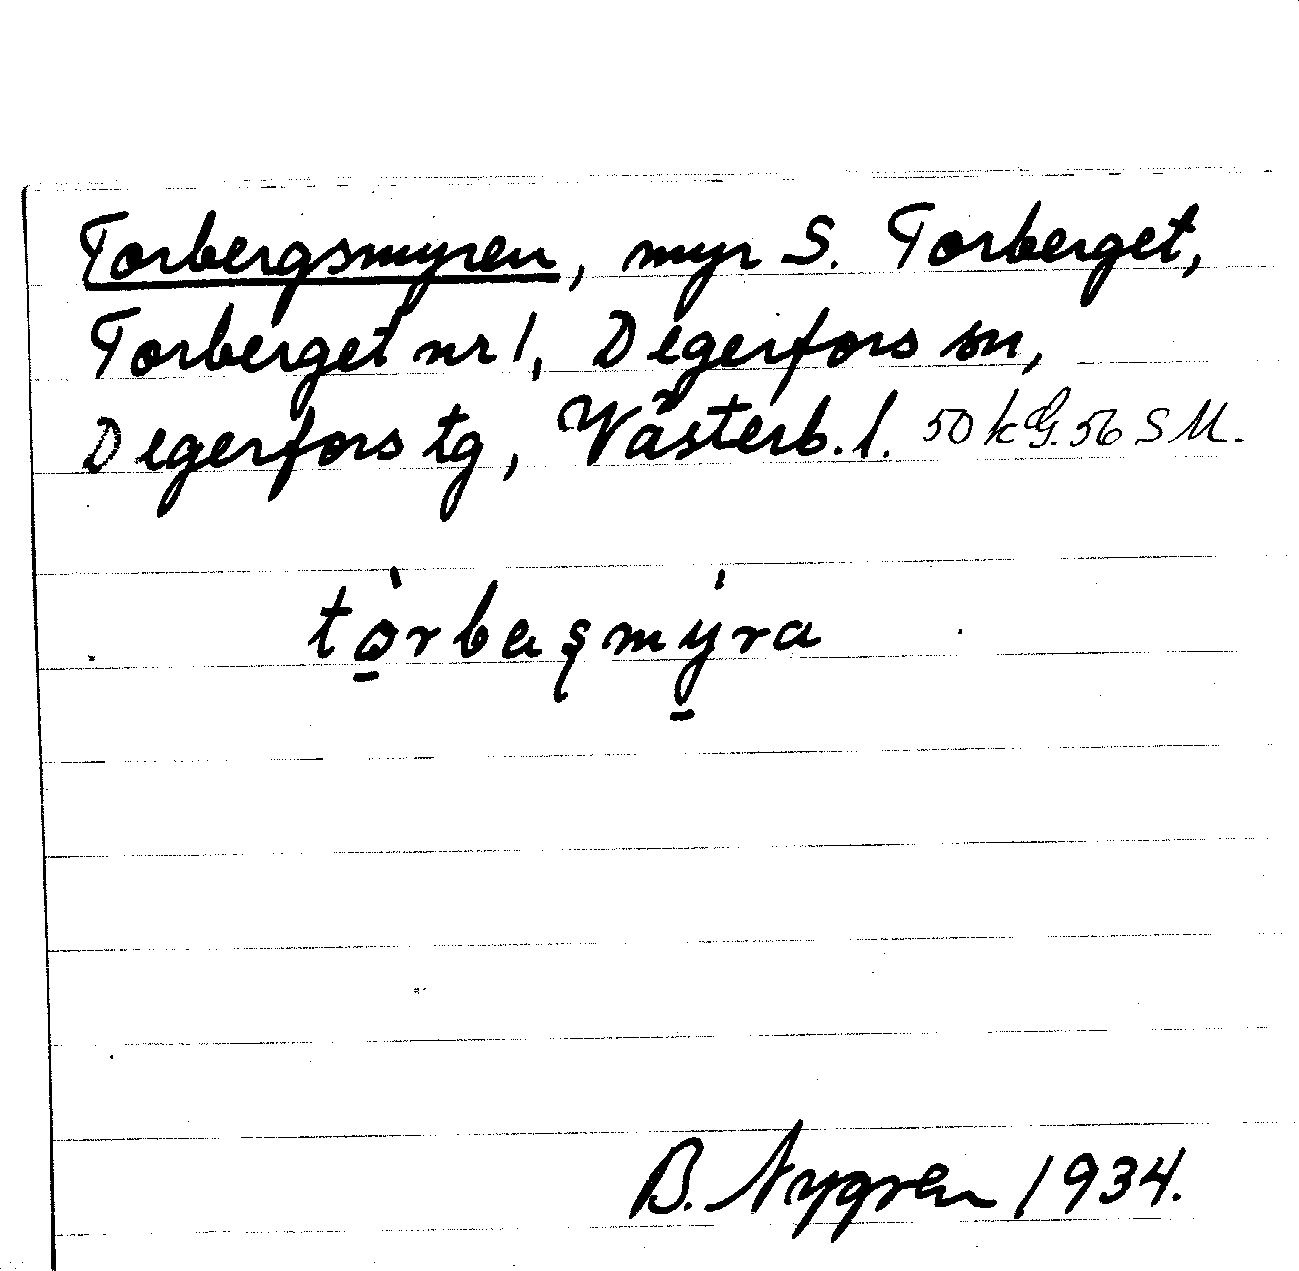 Torbergsmyren, myr S. Torberget,
Torberget nr 1, Degerfors sn,
Degerfors tg, Västerb. l. 50 kG. 56 S M.
tò̱rbaʂmý̱ra
B. Nygren 1934.